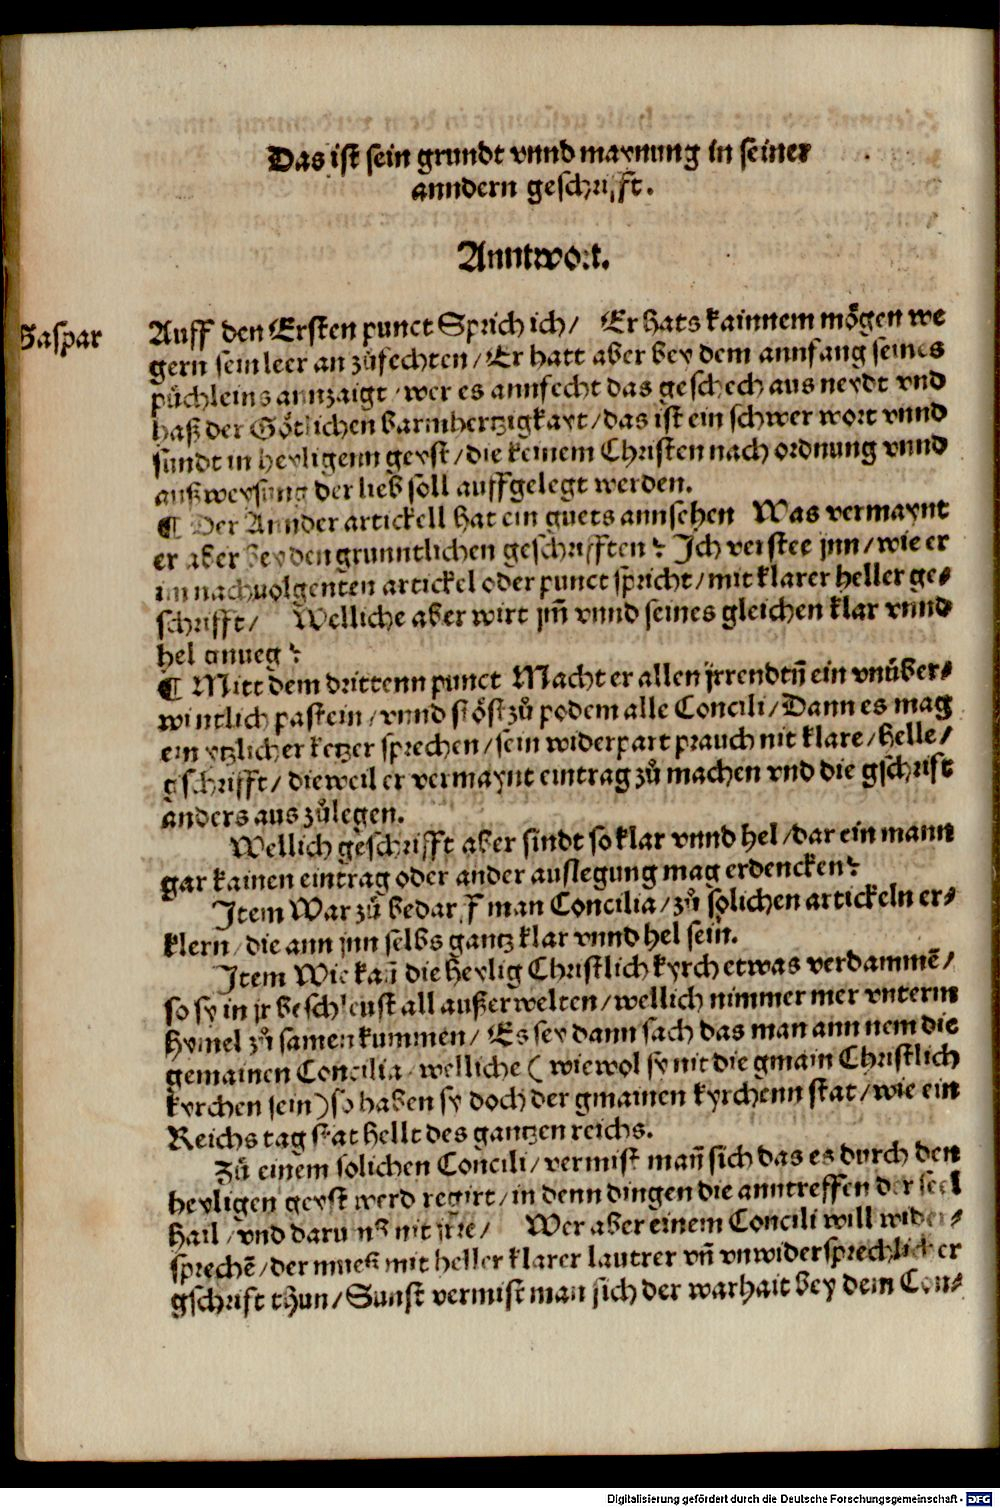 Das ist sein grundt vnnd maynung in seiner
anndern geschrifft.
Anntwort.
Gaspar
Auff den Ersten punct Sprich ich/ Er hats kainnem mögen we
gern sein leer an zůfechten/ Er hatt aber bey dem annfang seines
püchleins annzaigt/ wer es annfecht das geschech aus neydt vnd
haß der Götlichen barmhertzigkayt/ das ist ein schwer wort vnnd
sundt in heyligenn geyst/ die keinem Christen nach ordnung vnnd
außweysung der lieb soll auffgelegt werden.
¶ Der Annder artickell hat ein guets annsehen Was vermaynt
er aber bey den grunntlichen geschrifften? Ich verstee jnn/ wie er
im nachuolgenten artickel oder punct spricht/ mit klarer heller ge-
schrifft/ Welliche aber wirt jm̄ vnnd seines gleichen klar vnnd
hel gnueg?
¶ Mitt dem drittenn punct Macht er allen jrrendtn̄ ein vnüber-
wintlich pastein/ vnnd stöst zů podem alle Concili/ Dann es mag
ein ytzlicher ketzer sprechen/ sein widerpart prauch nit klare/ helle/
gschrifft/ dieweil er vermaynt eintrag zů machen vnd die gschrift
anders aus zůlegen.
Wellich geschrifft aber sindt so klar vnnd hel/ dar ein mann
gar kainen eintrag oder ander auslegung mag erdencken?
Item War zů bedarff man Concilia/ zů solichen artickeln er-
klern/ die ann jnn selbs gantz klar vnnd hel sein.
Item Wie kan̄ die heylig Christlich kyrch etwas verdammē/
so sy in jr beschleust all außerwelten/ wellich nimmer mer vnterm
hymel zů samen kummen/ Es sey dann sach das man ann nem die
gemainen Concilia/ welliche ( wiewol sy nit die gmain Christlich
kyrchen sein) so haben sy doch der gmainen kyrchenn stat/ wie ein
Reichs tag stat hellt des gantzen reichs.
Zů einem solichen Concili/ vermist man̄ sich das es durch den
heyligen geyst werd regirt/ in denn dingen die anntreffen der seel
hail/ vnd darumb nit jrre/ Wer aber einem Concili will wider-
sprechē/ der mueß mit heller klarer lautrer vn̄ vnwidersprechlicher
gschrift thun/ Sunst vermist man sich der warhait bey dem Con-
Digitalisierung gefördert durch die Deutsche Forschungsgemeinschaft - DFG